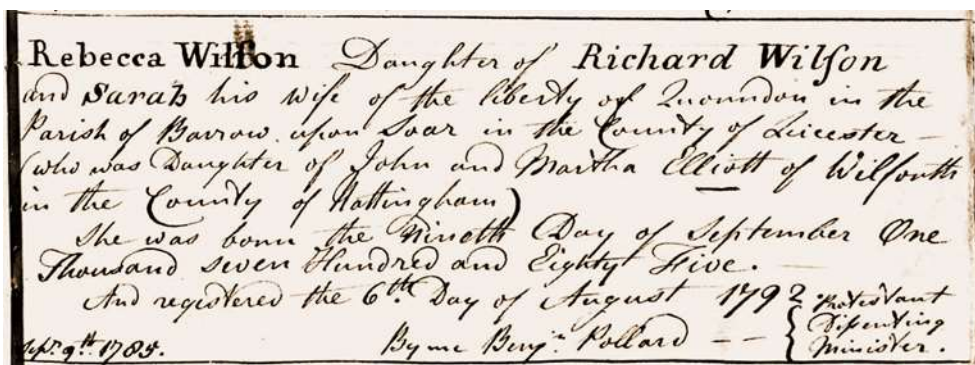 Rebecca Wilſon Daughter of Richard Wilſon
and Sarah his Wife of the liberty of Quorndon in the
Parish of Barrow upon Soar in the County of Leicester –
(who was Daughter of John and Martha Elliott of Wilford
in the County of Nottingham)
She was born the Nineth Day of September One
Thousand Seven Hundred and Eighty Five.
And registered the 6th. Day of August 1792
By me Benjn. Pollard – –
{ Protestant
Diſsenting
Miniſter.
Sept. 9th. 1785.